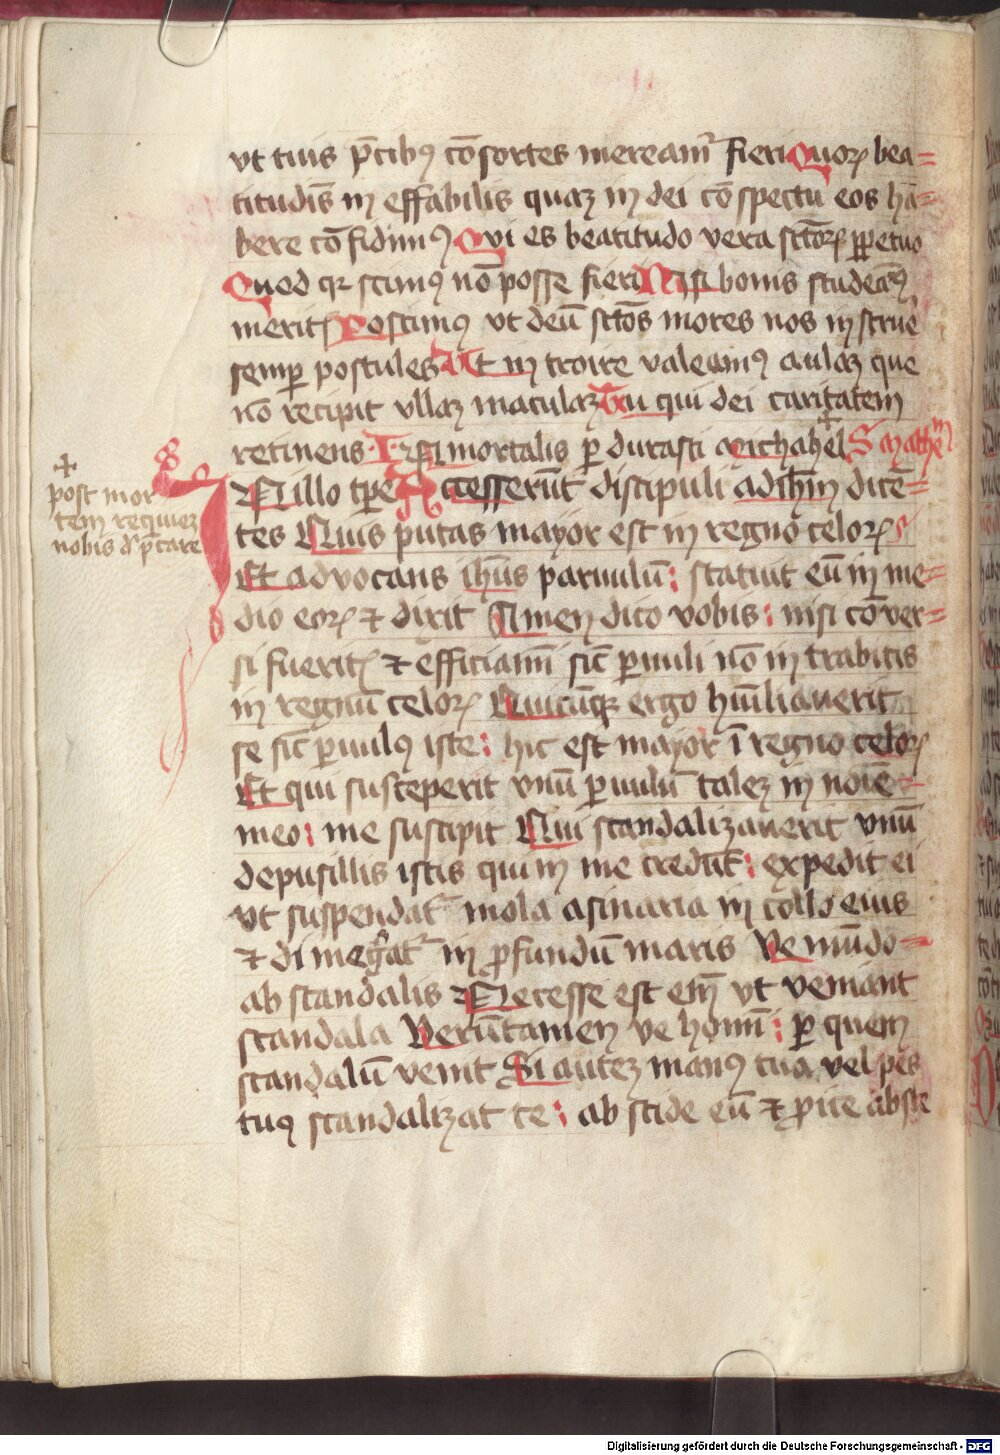 vt tuis p̄cibꝰ cōsortes mereamͬ fieri Quoꝝ bea=
titudīs in effabilis quaꝫ in dei cōspectu eos hā=
bere cōfidimꝰ Qui es beatitudo vera sctōꝝ ꝑpetuo
Quod qꝛ scimꝰ nō posse fieri Nisi bonis studeāꝰ
meritꝭ Poscimꝰ vt deū sctōs mores nos instrue
semꝑ postules Ut in troire valeamꝰ aulaꝫ que
nō recipit vllaꝫ maculaꝫ Tu qui dei caritatem
retinens I Nmortalis ꝑ durasti michahel S Mathm
IN illo tꝑe Accesserūt discipuli ad ihm dicē=
tes Quis putas mayor est in regno celoꝝ
Et advocans ihūs paruulū: statuit eū in me=
dio eoꝝ ⁊ dixit Amen dico vobis: nisi cōver=
si fueritꝭ ⁊ efficiamī sic̄ ꝑuuli nō in trabitis
in regnū celoꝝ Quicūqꝫ ergo hūiliauerit
se sic̄ ꝑuulꝰ iste: hic est mayor ī regno celoꝝ
Et qui susceperit vnū ꝑuulū taleꝫ in noīe=
meo: me suscipit Qui scandalizauerit vnū
depusillis istis qui in me credūt: expedit ei
vt suspendatͬ mola asinaria in collo eius
⁊ di mergatͬ in ꝓfundū maris Ve mūdo=
ab scandalis Necesse est em̄ vt veniant
scandala Verūtamen ve homī: ꝑ quem
scandalū venit Si auteꝫ manꝰ tua vel pes
tuꝰ scandalizat te: ab scide eū ⁊ ꝓice abste
✝
post mor
tem requieꝫ
nobis dꝰ p̄care
Digitalisierung gefördert durch die Deutsche Forschungsgemeinschaft - DFG